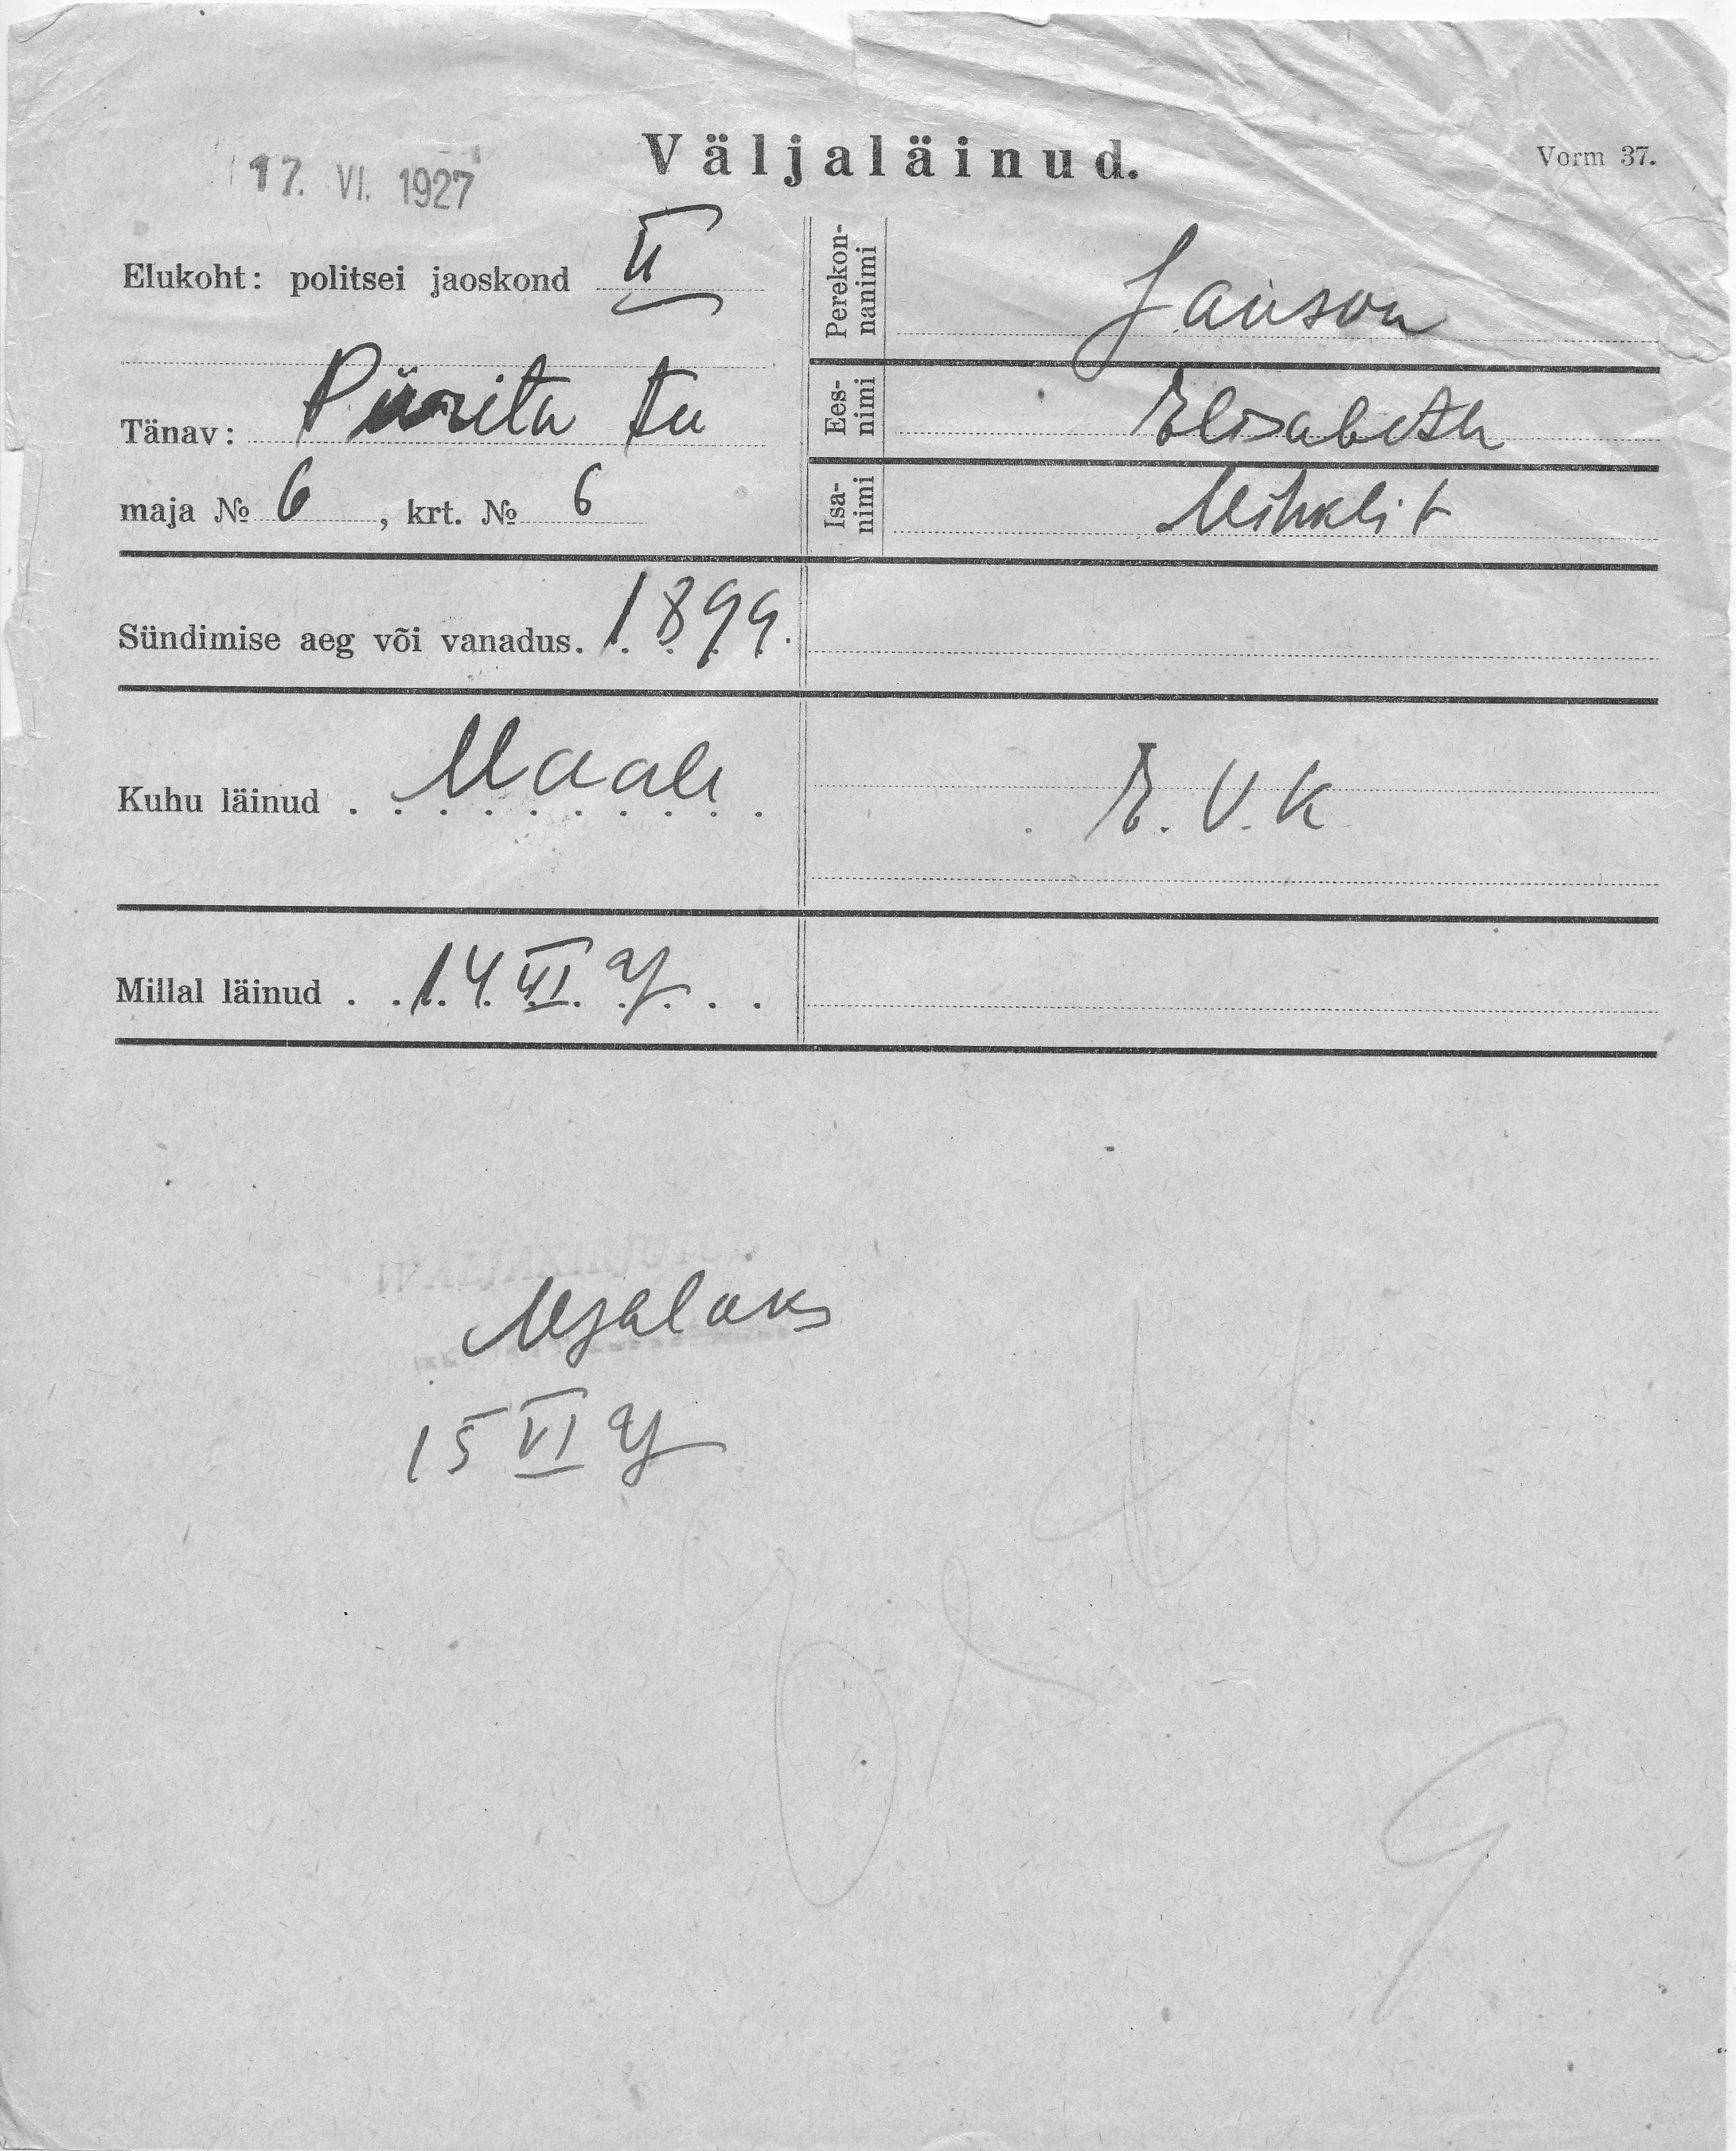 Väljaläinud.
Vorm 37.
17. VI. 1927
Elukoht: politsei jaoskond II
Tänav: tn
maja № 6, krt. № 6
Perekonnanimi Janson
Eesnimi Elisabeth
Isanimi Mihkli t
Sündimise aeg või vanadus. 1899.
Kuhu läinud . Maale
E. V. K
Millal läinud . . 14 VI 27
15 VI 27